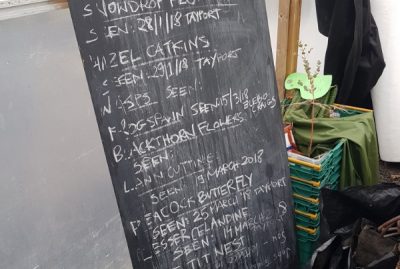 SNOWDROP
SEEN: 28/1/18 TAYPORT
HAZEL CATKINS
SEEN: 29/1/18 TAYPORT
WASPS SEEN:
FROGSPAWN SEEN 15/3/18
BLACKTHORN FLOWERS
SEEN:
LAWN CUTTING
SEEN: 19 MARCH 2018
PEACOCK BUTTERFLY
SEEN: 25 MARCH 18 TAYPORT
LESSER CELANDINE
SEEN: 14 MARCH
TIT NEST